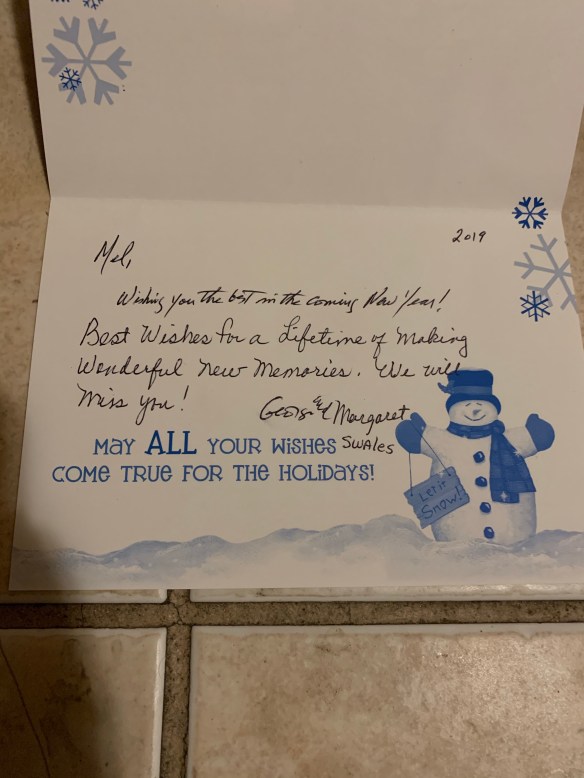 2019
Mel,
Wishing you the best in the coming New Year!
Best Wishes for a Lifetime of Making
Wonderful New Memories. We will
Miss you!
George & Margaret
Swales
MAY ALL YOUR WISHES
COME TRUE FOR THE HOLIDAYS!
Let it
Snow!